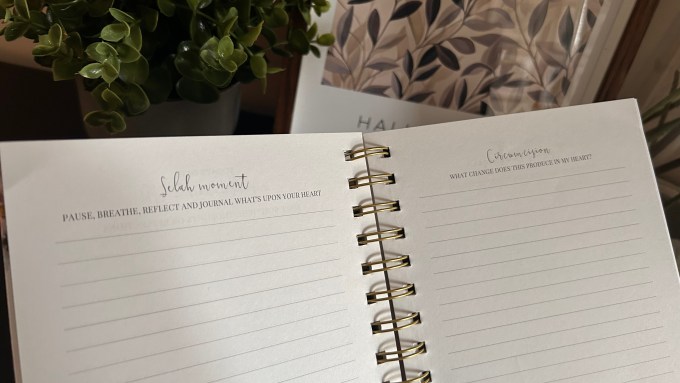 HALL
Selah moment
PAUSE, BREATHE, REFLECT AND JOURNAL WHAT'S UPON YOUR HEART
Circumcision
WHAT CHANGE DOES THIS PRODUCE IN MY HEART?